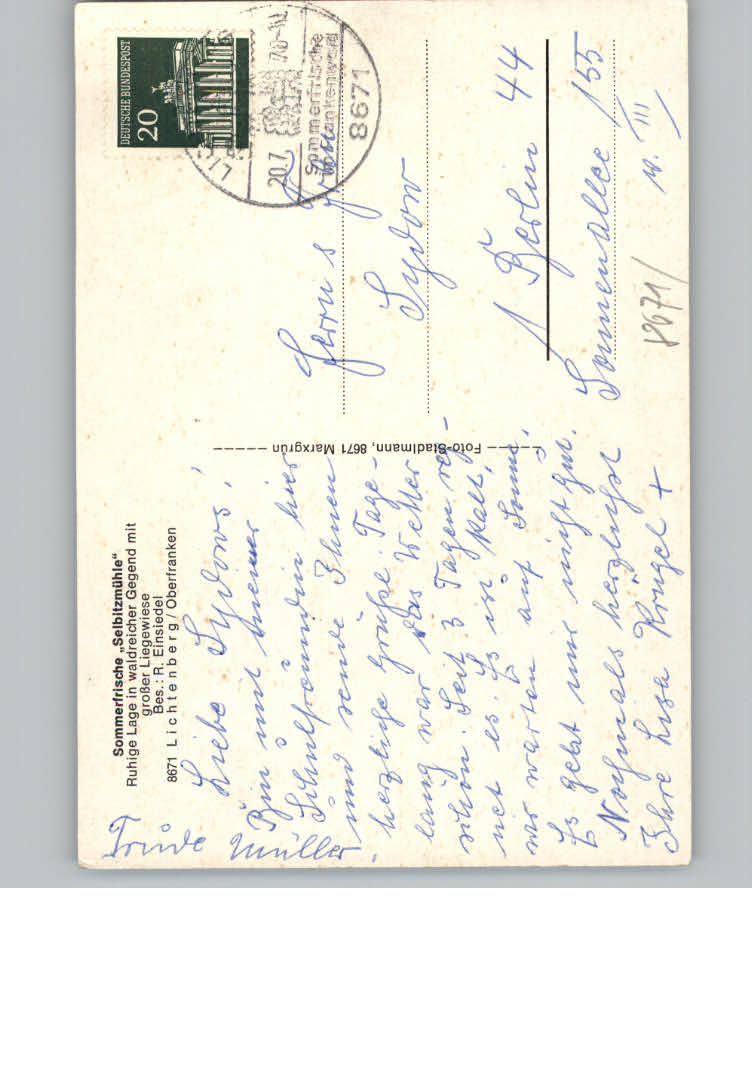 Sommerfrische „Selbitzmühle“
Ruhige Lage in waldreicher Gegend mit
großer Liegewiese
Bes.: R. Einsiedel
8671 Lichtenberg/Oberfranken
Liebe Sydows!
Bin mit meiner
Schulfreundin hier
und sende Ihnen
herzliche Grüße. Tage-
lang war das Wetter
schön. Seit 3 Tagen reg-
net es. Es ist kalt,
wir warten auf Sonne.
Es geht uns recht gut.
Nochmals herzlichst
Ihre Lisa Krügel +
Trude
Müller.
Foto-Stadlmann, 8671 Marxgrün
DEUTSCHE BUNDESPOST
20
20.7.
Sommerfrische
Frankenwald
8671
Herrn u Frau
Sydow
1 Berlin 44
Sonnenallee 155
III
8671/